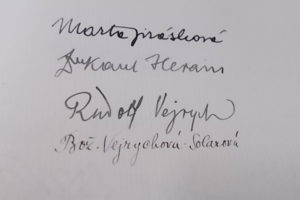 Marta Jirásková
Dr Karel Herain
Rudolf Vejrych
Bož. Vejrychová-Solarová